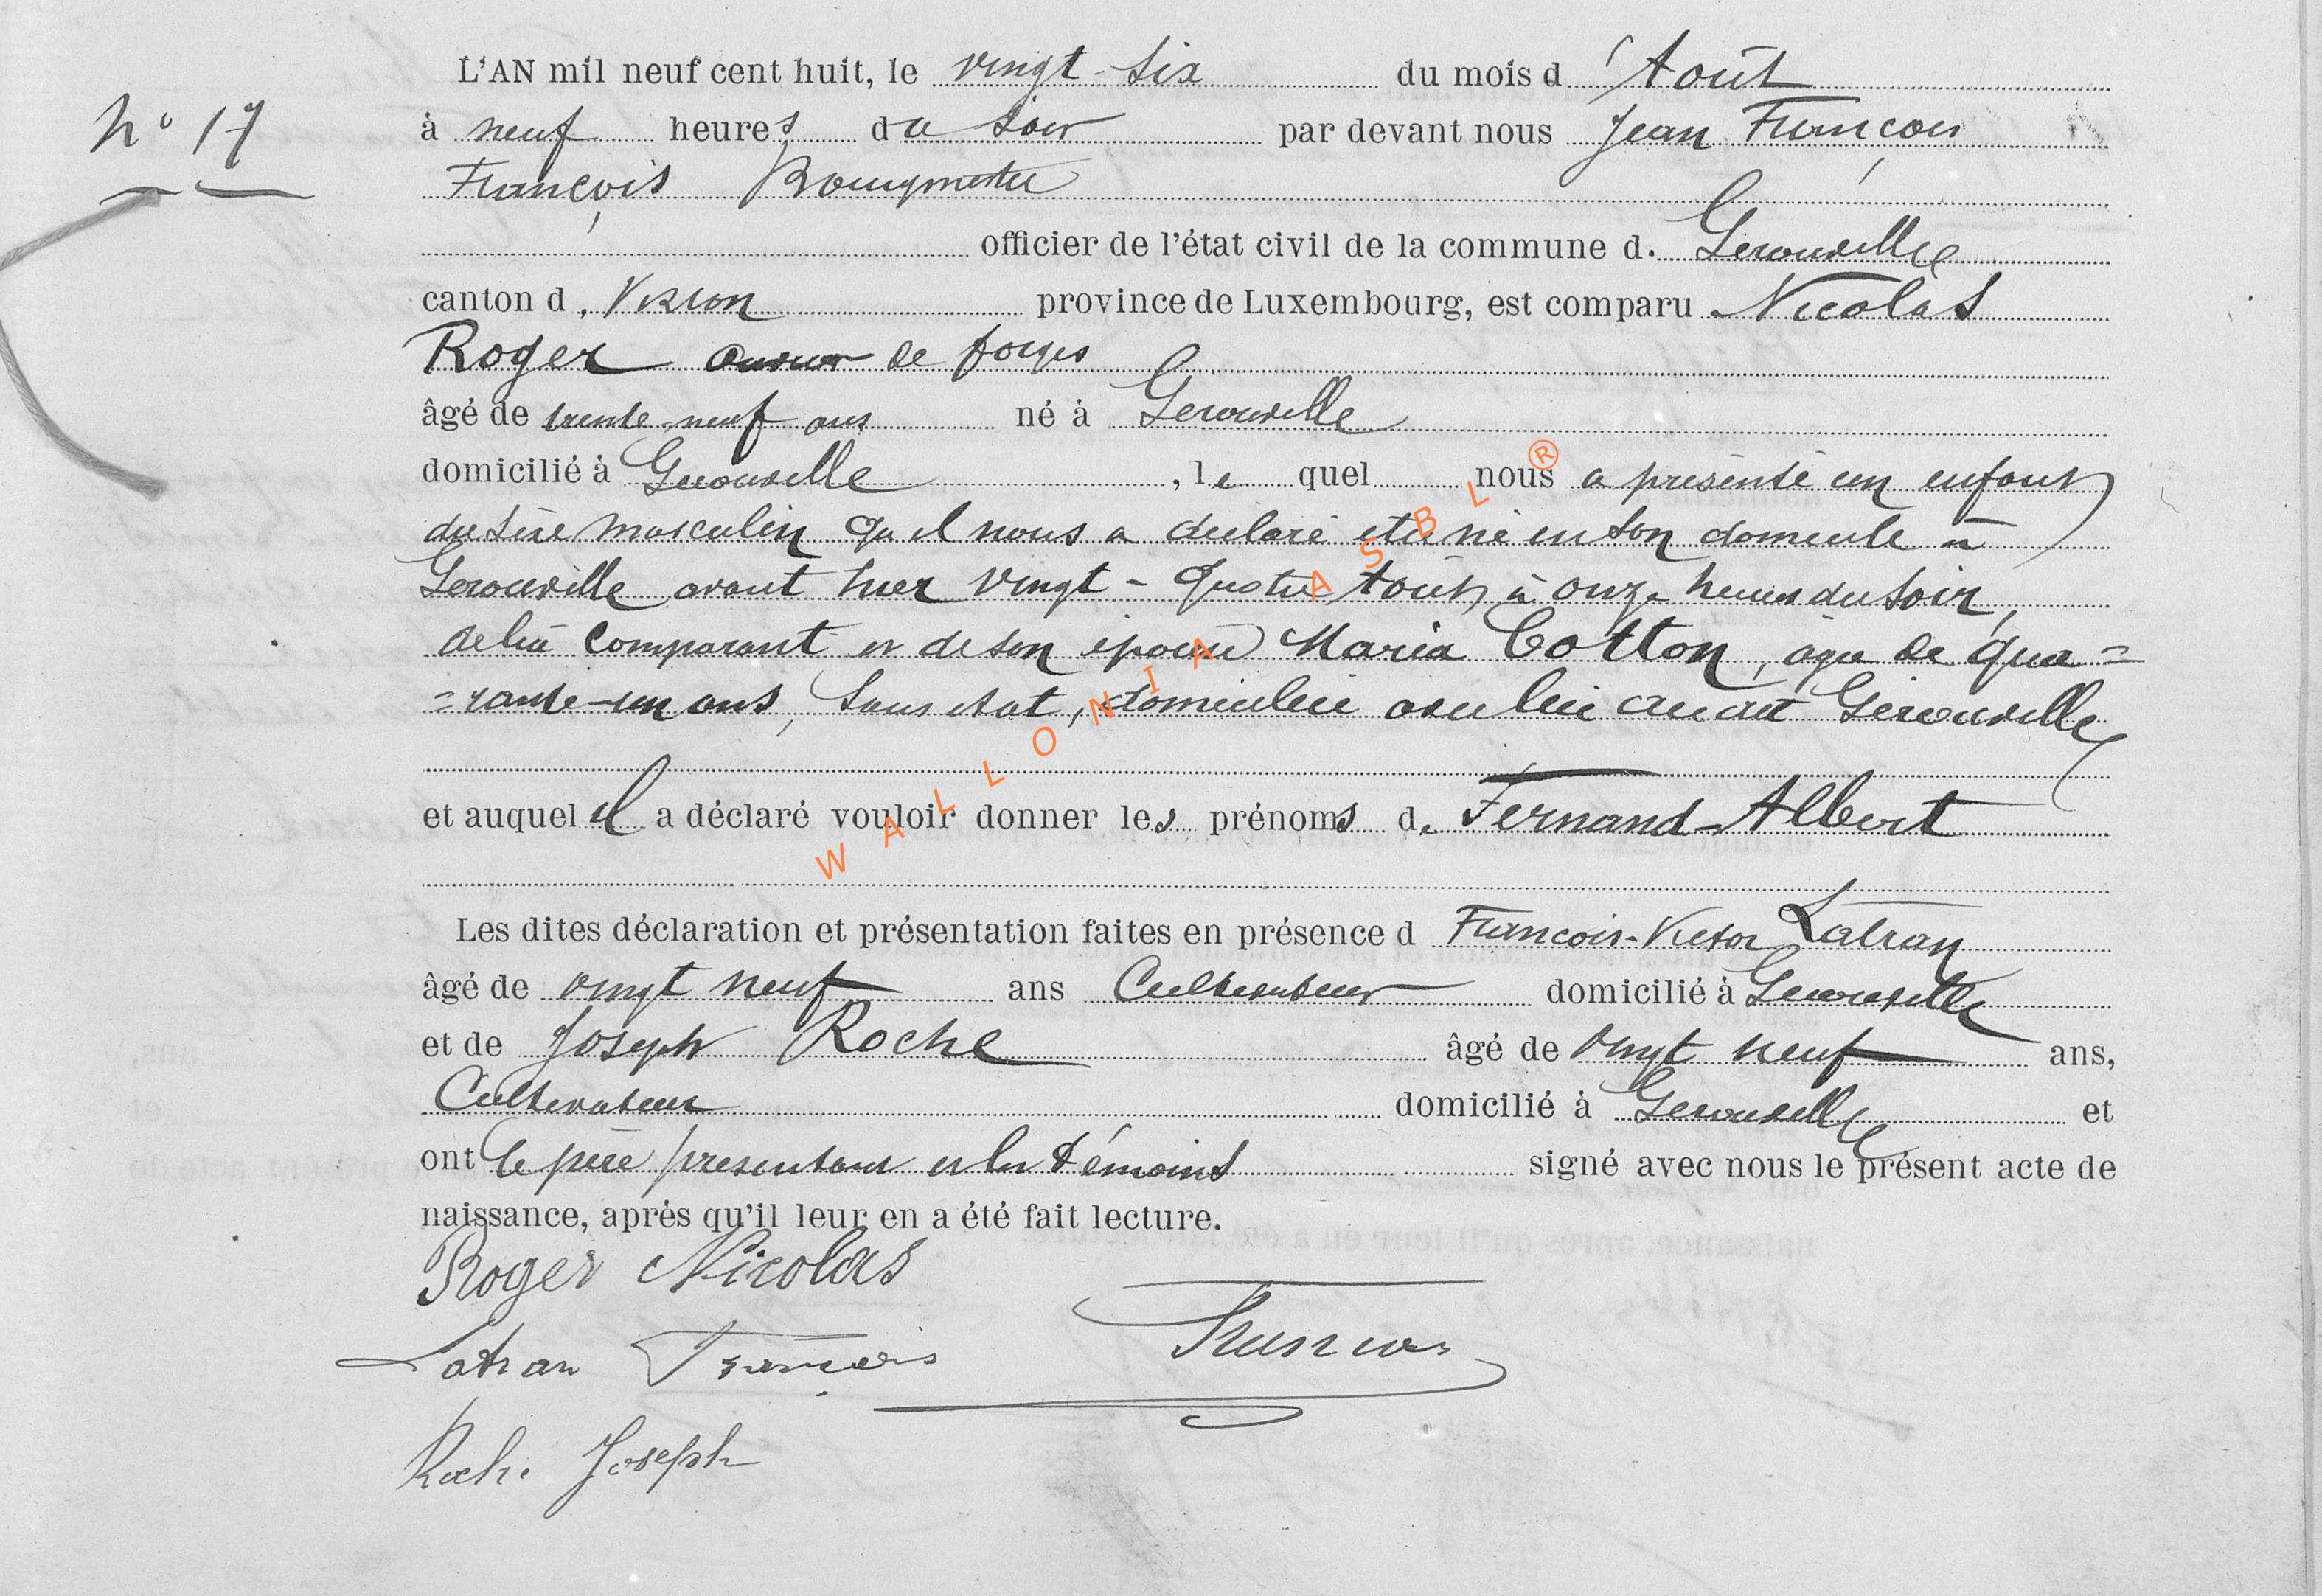 L'AN mil neuf cent huit, le vingt-six du mois d'Août
N° 17
à neuf heures du soir par devant nous Jean François
François Bourgmestre
officier de l'état civil de la commune de Gerouville
canton de Virton province de Luxembourg, est comparu Nicolas
Roger ouvrier de forges
âgé de trente-neuf ans né à Gerouville
domicilié à Gerouville, lequel nous a présenté un enfant
du sexe masculin qu'il nous a déclaré être né en son domicile à
Gerouville avant hier vingt-quatre Août à onze heures du soir,
de lui comparant et de son épouse Maria Cotton, âgée de qua=
=rante-un ans, sans état, domiciliée avec lui au dit Gerouville
et auquel il a déclaré vouloir donner les prénoms de Fernand-Albert
Les dites déclaration et présentation faites en présence d François-Victor Latran
âgé de vingt neuf ans Cultivateur domicilié à Gerouville
et de Joseph Roche âgé de vingt neuf ans,
Cultivateur domicilié à Gerouville et
ont le père présentant et les témoins signé avec nous le présent acte de
naissance, après qu'il leur en a été fait lecture.
Roger Nicolas
Latran François
François
Roche Joseph
WALLONIA ASBL ®